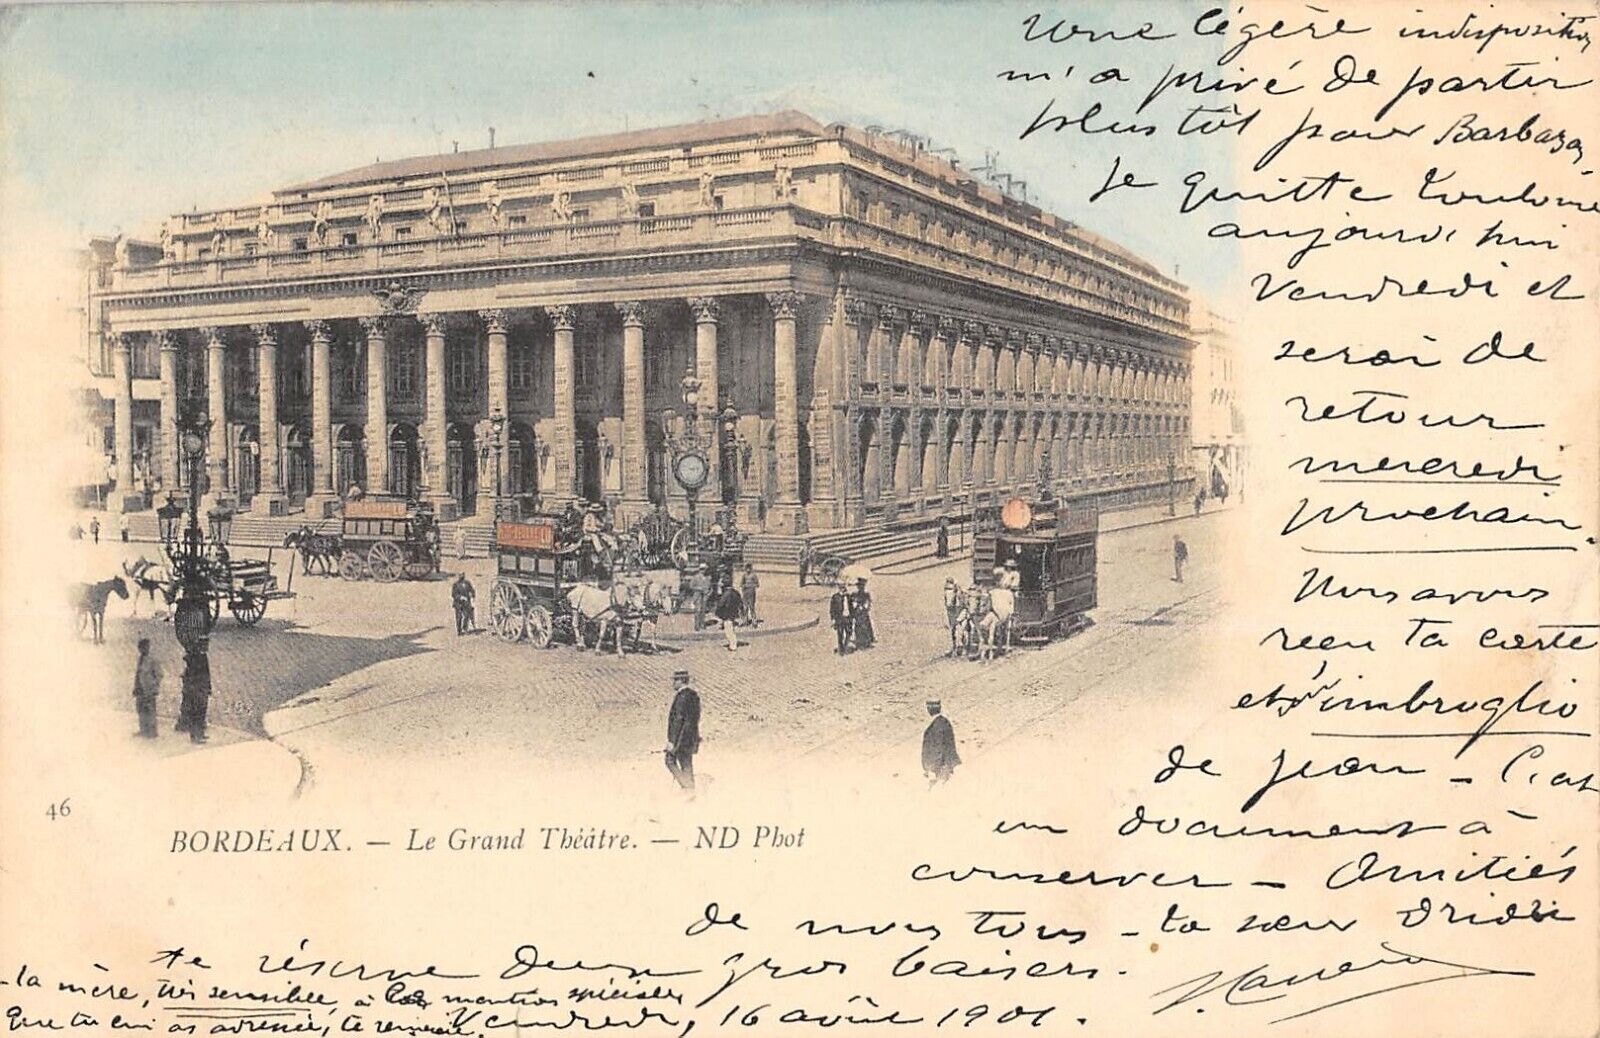 Une légère indisposition
m'a privé de partir
plus tôt pour Barbazan,
Je quitte Toulouse
aujourd'hui
Vendredi et
serai de
retour
mercredi
prochain.
Nous avons
reçu ta carte
et l'imbroglio
de Jean - C'est
un document à
conserver - Amitiés
de nous tous - ta sœur
te réserve deux gros baisers.
-la mère, très sensible, à mention spéciale
que tu lui as adressée, te remercie.
Vendredi, 16 août 1901.
46
BORDEAUX. — Le Grand Théâtre. — ND Phot